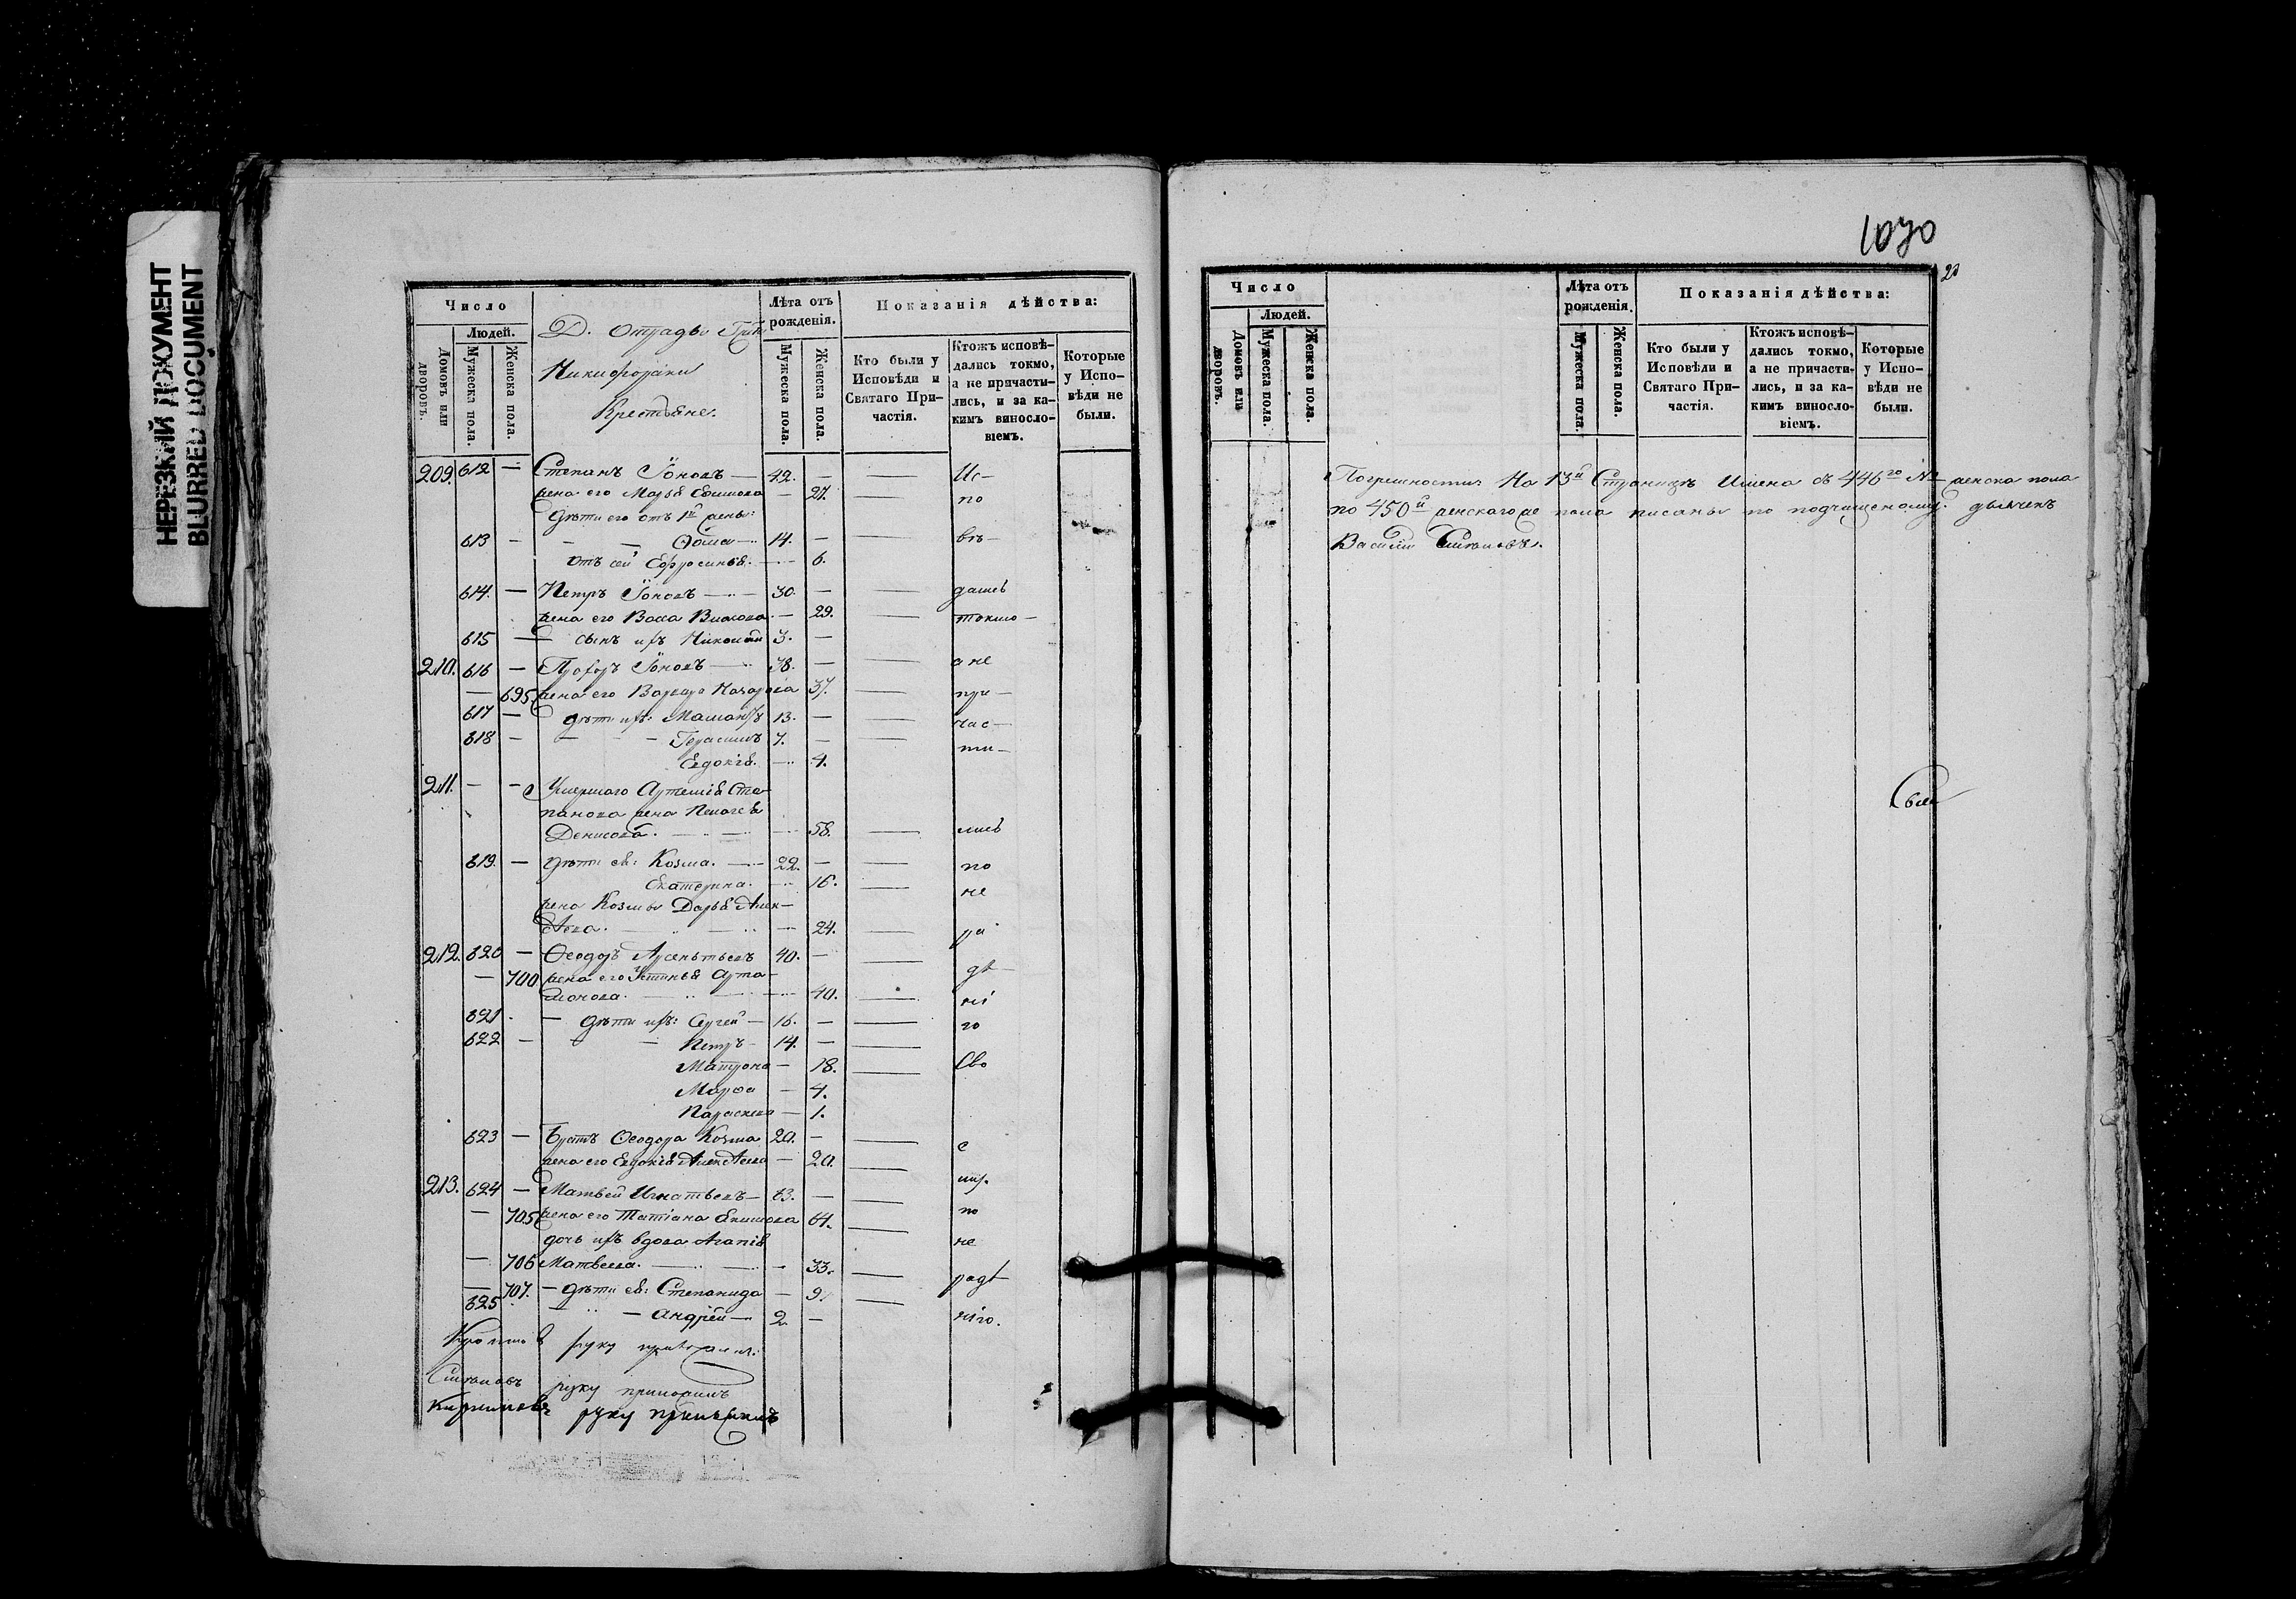 НЕРЕЗКИЙ ДОКУМЕНТ
BLURRED DOCUMENT
Число
Людей.
Домовъ или дворовъ.
Мужеска пола.
Женска пола.
Д. Отрады
Никифоровки
Крестьяне.
Лѣта отъ рожденія.
Мужеска пола.
Женска пола.
Показанія дѣйства:
Кто были у Исповѣди и Святаго Причастія.
Ктожъ исповѣ-
дались токмо,
а не причасти-
лись, и за ка-
кимъ винословіемъ.
Которые
у Испо-
вѣди не
были.
209. 612 — Степанъ Іоновъ — 42. — Ис-
жена его Марья — 27. по
дѣти его отъ 1й жены:
613 — Ѳома — 14. — вѣ-
отъ сей Ефросинья. — 6.
614. — Петръ Іоновъ — 30. — дались
жена его Васса — 29. токмо —
615 — сынъ ихъ Николай 3. —
210. 616 — Прохоръ Іоновъ — 38. — а не
— 695 жена его Варвара Назарова 37. при —
617 — дѣти ихъ: 13. — час —
618 — Герасимъ 7. — ти —
Евдокія. — 4.
211. — — Умершаго Артемія Сте-
панова жена Пелагея
Денисова. — 58. лись
619. — дѣти ея: Козма. — 22. — по
Екатерина. — 16. не
жена Козмы Дарья Алек-
сѣева. — 24. ра
212. 620 — Ѳеодоръ Арсентьевъ 40. —
— 700 жена его Устинья Арта- дѣ
монова. — 40. ні
621 — дѣти ихъ: Сергей — 16. — го
622 — Петръ — 14. —
Матрона — 18. Сво
Марѳа — 4.
Параскева — 1.
623 — Братъ Ѳеодора Козма 20. — е
жена его Евдокія Алексѣева — 20.
213. 624 — Матвей Игнатьевъ — 63. —
— 705 жена его Татіана Екимова 64. по
дочь ихъ вдова Агапія не
— 706 Матвеева. — 33. радѣ
— 707. — дѣти ея: Степанида — 9.
625 — Андрей — 2. — ніго.
руку приложилъ
руку приложилъ
руку приложилъ
1020
20
Число
Людей.
Домовъ или дворовъ.
Мужеска пола.
Женска пола.
Лѣта отъ рожденія.
Мужеска пола.
Женска пола.
Показанія дѣйства:
Кто были у Исповѣди и Святаго Причастія.
Ктожъ исповѣ-
дались токмо,
а не причасти-
лись, и за ка-
кимъ винословіемъ.
Которые
у Испо-
вѣди не
были.
На 13й Страницѣ Имена съ 446го № женска пола
по 450й женскаго же пола писаны по подчищеному. дьячекъ
Василій